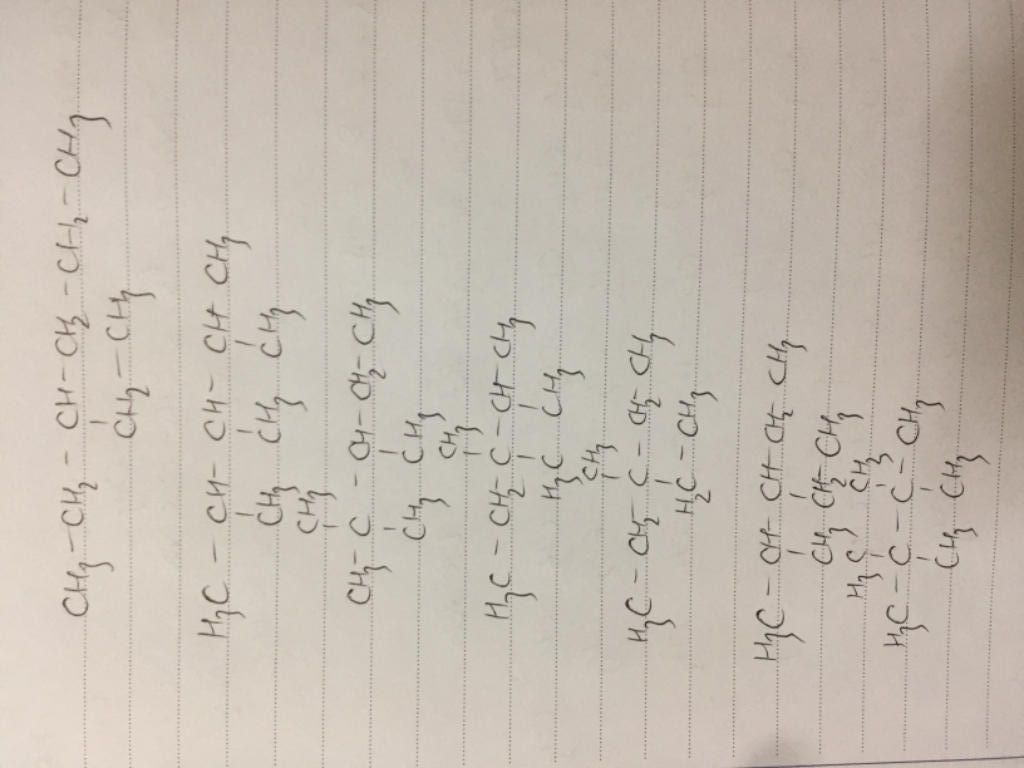 CH3-CH2-CH-CH2-CH2-CH3
CH2-CH3
H3C-CH-CH-CH-CH3
CH3 CH3 CH3
CH3
CH3-C-CH-CH2-CH3
CH3 CH3
CH3
H3C-CH2-C-CH-CH3
H3C CH3
CH3
H3C-CH2-C-CH2-CH3
H2C-CH3
H3C-CH-CH-CH2-CH3
CH3 CH2-CH3
H3C CH3
H3C-C-C-CH3
CH3 CH3